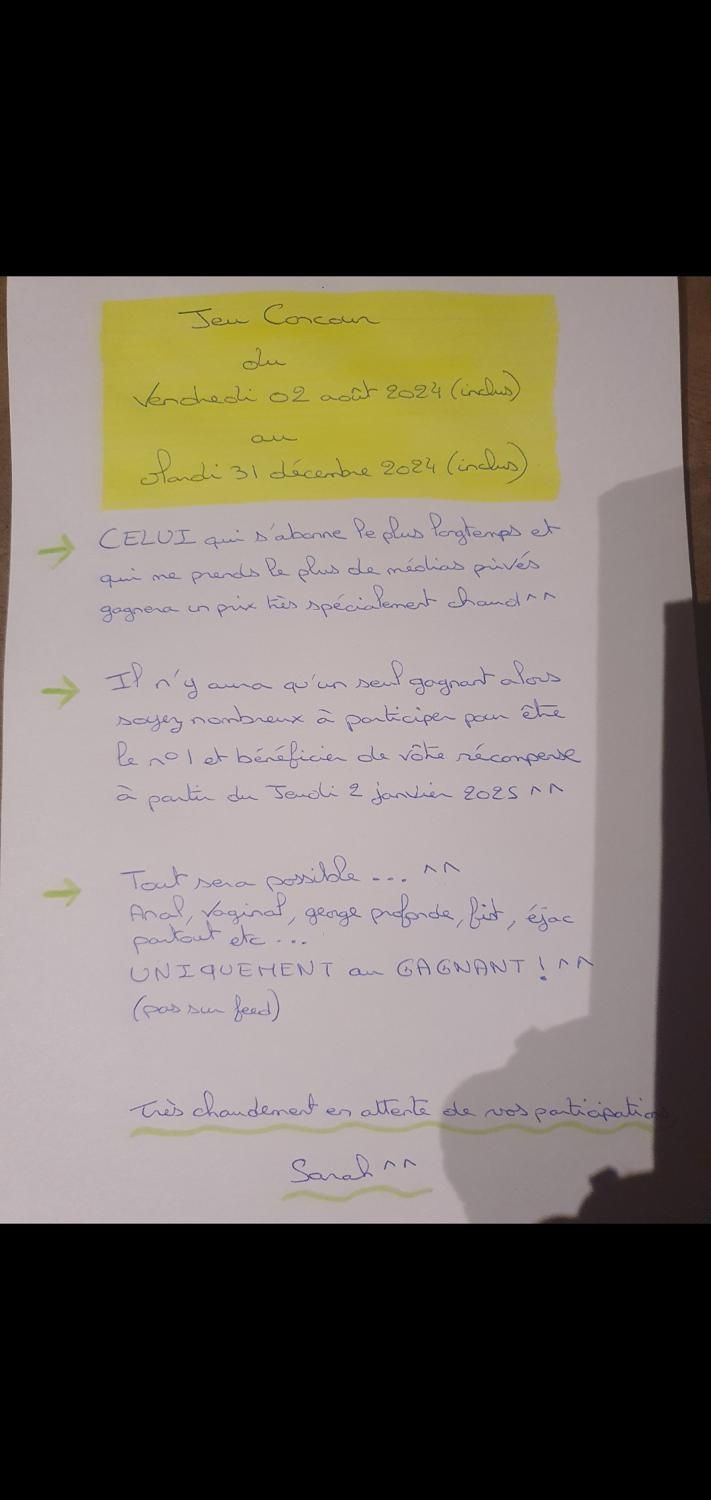 Jeu Concour
du
Vendredi 02 août 2024 (inclus)
au
Mardi 31 décembre 2024 (inclus)
→ CELUI qui s'abonne le plus longtemps et
qui me prends le plus de médias privés
gagnera un prix très spécialement chaud ^^
→ Il n'y aura qu'un seul gagnant alors
soyez nombreux à participer pour être
le n°1 et bénéficier de vôtre récompense
à partir du Jeudi 2 janvier 2025 ^^
→ Tout sera possible ... ^^
Anal, vaginal, george profonde, fist, éjac
partout etc ...
UNIQUEMENT au GAGNANT ! ^^
(pas sur feed)
Très chaudement en attente de vos participations
Sarah ^^